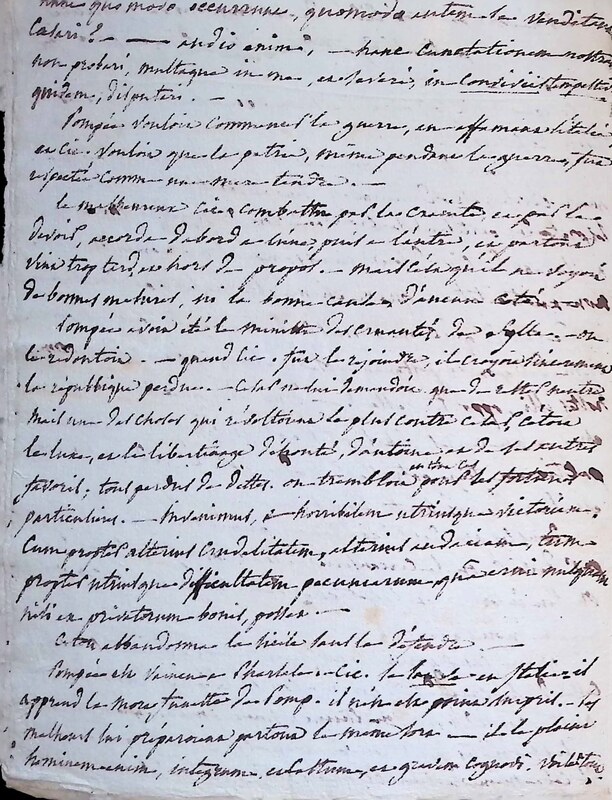 nunc quo modo occurram, quomodo autem se venditent
Caesari? — audio enim, — hanc cunctationem nostram
non probari, multaque in me, et severe, in conviviis tempestivis
quidem, disputari. —
Pompée vouloit commencer la guerre, en affamant l'Italie
et Cic. vouloit que la patrie, même pendant la guerre, fut
respectée comme une mere tendre. —
le malheureux Cic. combattu par la crainte et par le
devoir, accorda d'abord a l'une puis a l'autre, et partout
vint trop tard et hors de propos. — mais c'est qu'il ne voyoit
de bonnes mesures, ni la bonne cause, d'aucun coté.
Pompée avoit été le ministre des cruautés de Sylla — on
le redoutoit. — quand Cic. fut le rejoindre, il croyoit sincerement
la republique perdue. — Cesar ne lui demandoit que de rester neutre
mais une des choses qui révoltoient le plus contre Cesar, c'etoit
le luxe, et le libertinage éhonté, d'antoine et de ses autres
favoris, tous perdus de dettes. on trembloit pour les fortunes
particulieres. — horribilem utriusque victoriam.
Cum propter alterius crudelitatem, alterius audaciam, tum
propter utriusque difficultatem pecuniarum, quae erui nusquam
nisi ex privatorum bonis, posset —
Caton abbandonna la Sicile sans la défendre —
Pompée est vaincu a Pharsale. Cic. en Italie il
apprend la mort funeste de Pomp. il n'en est point surpris. — ses
malheurs lui préparoient partout le meme sort — il le plaint
hominem enim, integrum, et castum, et gravem cognovi. voila tout